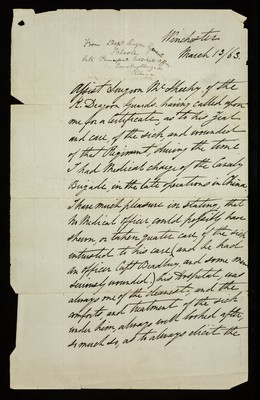 Winchester
March 13/63.
From Dept Surgn
Assist Surgeon McSheehy of the
K. Dragoon Guards, having called upon
me for a certificate, as to his zeal
and care, of the sick and wounded
of that Regiment, during the time
I had Medical charge of the Cavalry
Brigade in the late operations in China
I have much pleasure in stating, that
no Medical Officer could possibly have
shewn, or taken greater care of the sick
intrusted to his care (and he had
an officer Captn Bradbury, and some men
seriously wounded,) his Hospital, was
always one of the cleanest, and the
comforts, and treatment of the sick
under him, always well looked after,
so much so, as to always elicit the